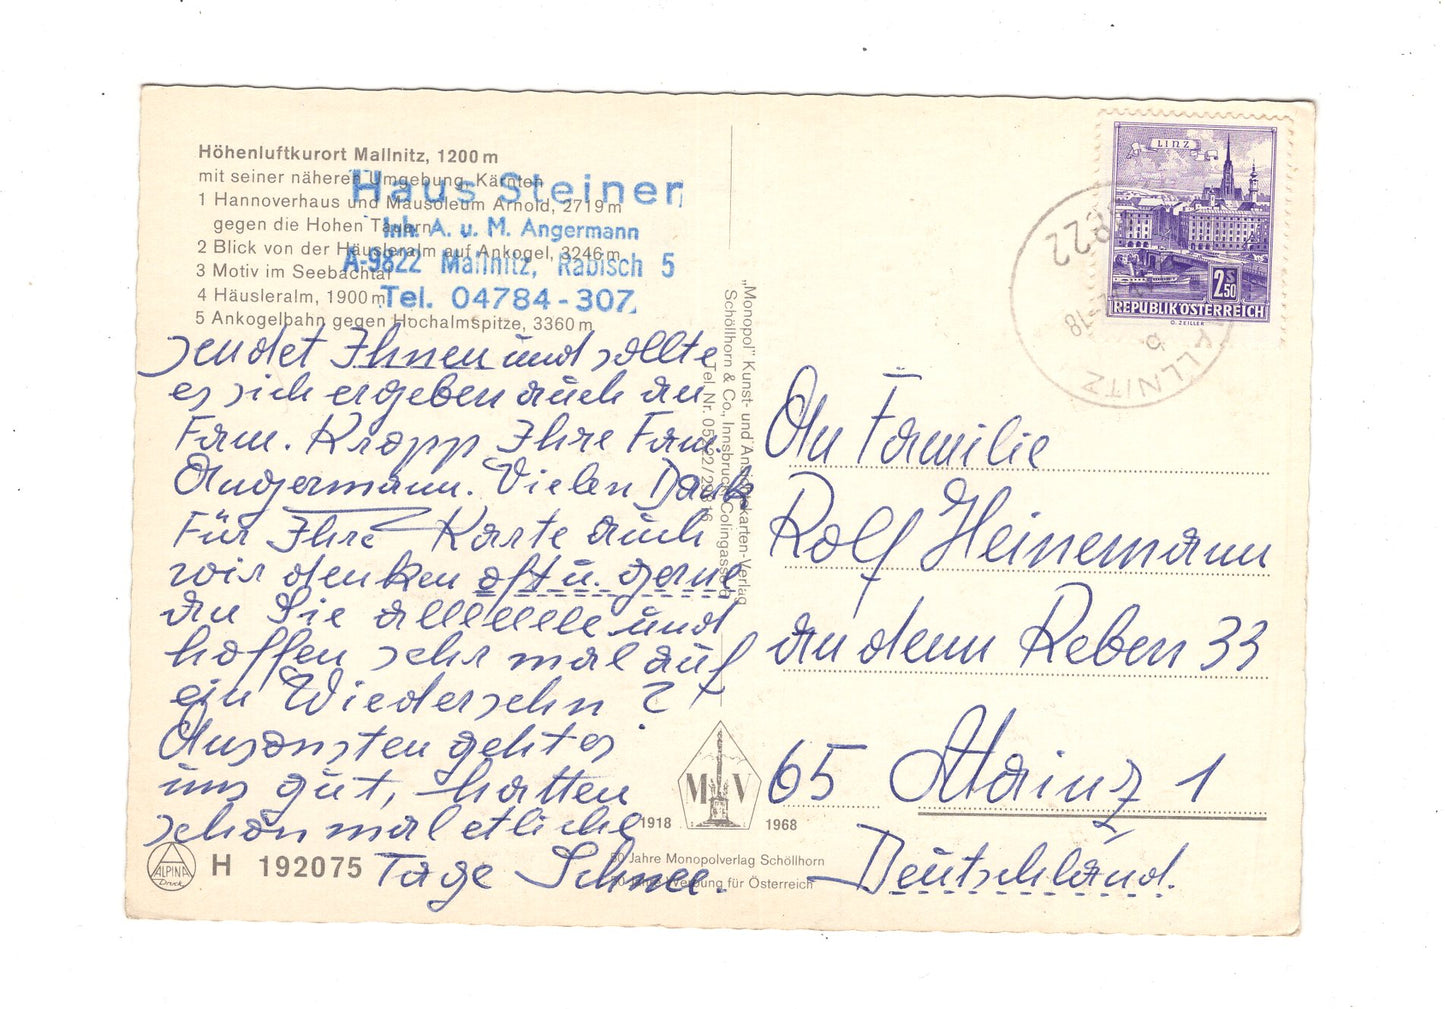 Höhenluftkurort Mallnitz, 1200 m
mit seiner näheren Umgebung, Kärnten
1 Hannoverhaus und Mausoleum Arnold, 2719 m
gegen die Hohen Tauern
2 Blick von der Häusleralm auf Ankogel, 3246 m
3 Motiv im Seebachtal
4 Häusleralm, 1900 m
5 Ankogelbahn gegen Hochalmspitze, 3360 m
Haus Steiner
Inh. A. u. M. Angermann
A-9822 Mallnitz, Rabisch 5
Tel. 04784-307
sendet Ihnen und sollte
es sich ergeben auch an
Fam. Kropp Ihre Fam.
Angermann. Vielen Dank
Für Ihre Karte auch
wir denken oft u. gerne
an Sie alleeeeee und
hoffen sehr mal auf
ein Wiedersehn ?
Ansonsten geht es
uns gut, hatten
schon mal etliche
Tage Schnee.
ALPINA
Druck
H 192075
„Monopol" Kunst- und Ansichtskarten-Verlag
Schöllhorn & Co., Innsbruck, Colingasse
Tel. Nr. 05222/29816
M V
1918 1968
50 Jahre Monopolverlag Schöllhorn
50 Jahre Werbung für Österreich
LINZ
2.50
S
REPUBLIK ÖSTERREICH
O. ZEILLER
9822
-18
b
MALLNITZ
An Familie
Rolf Heinemann
an denn Reben 33
65 Mainz 1
Deutschland.